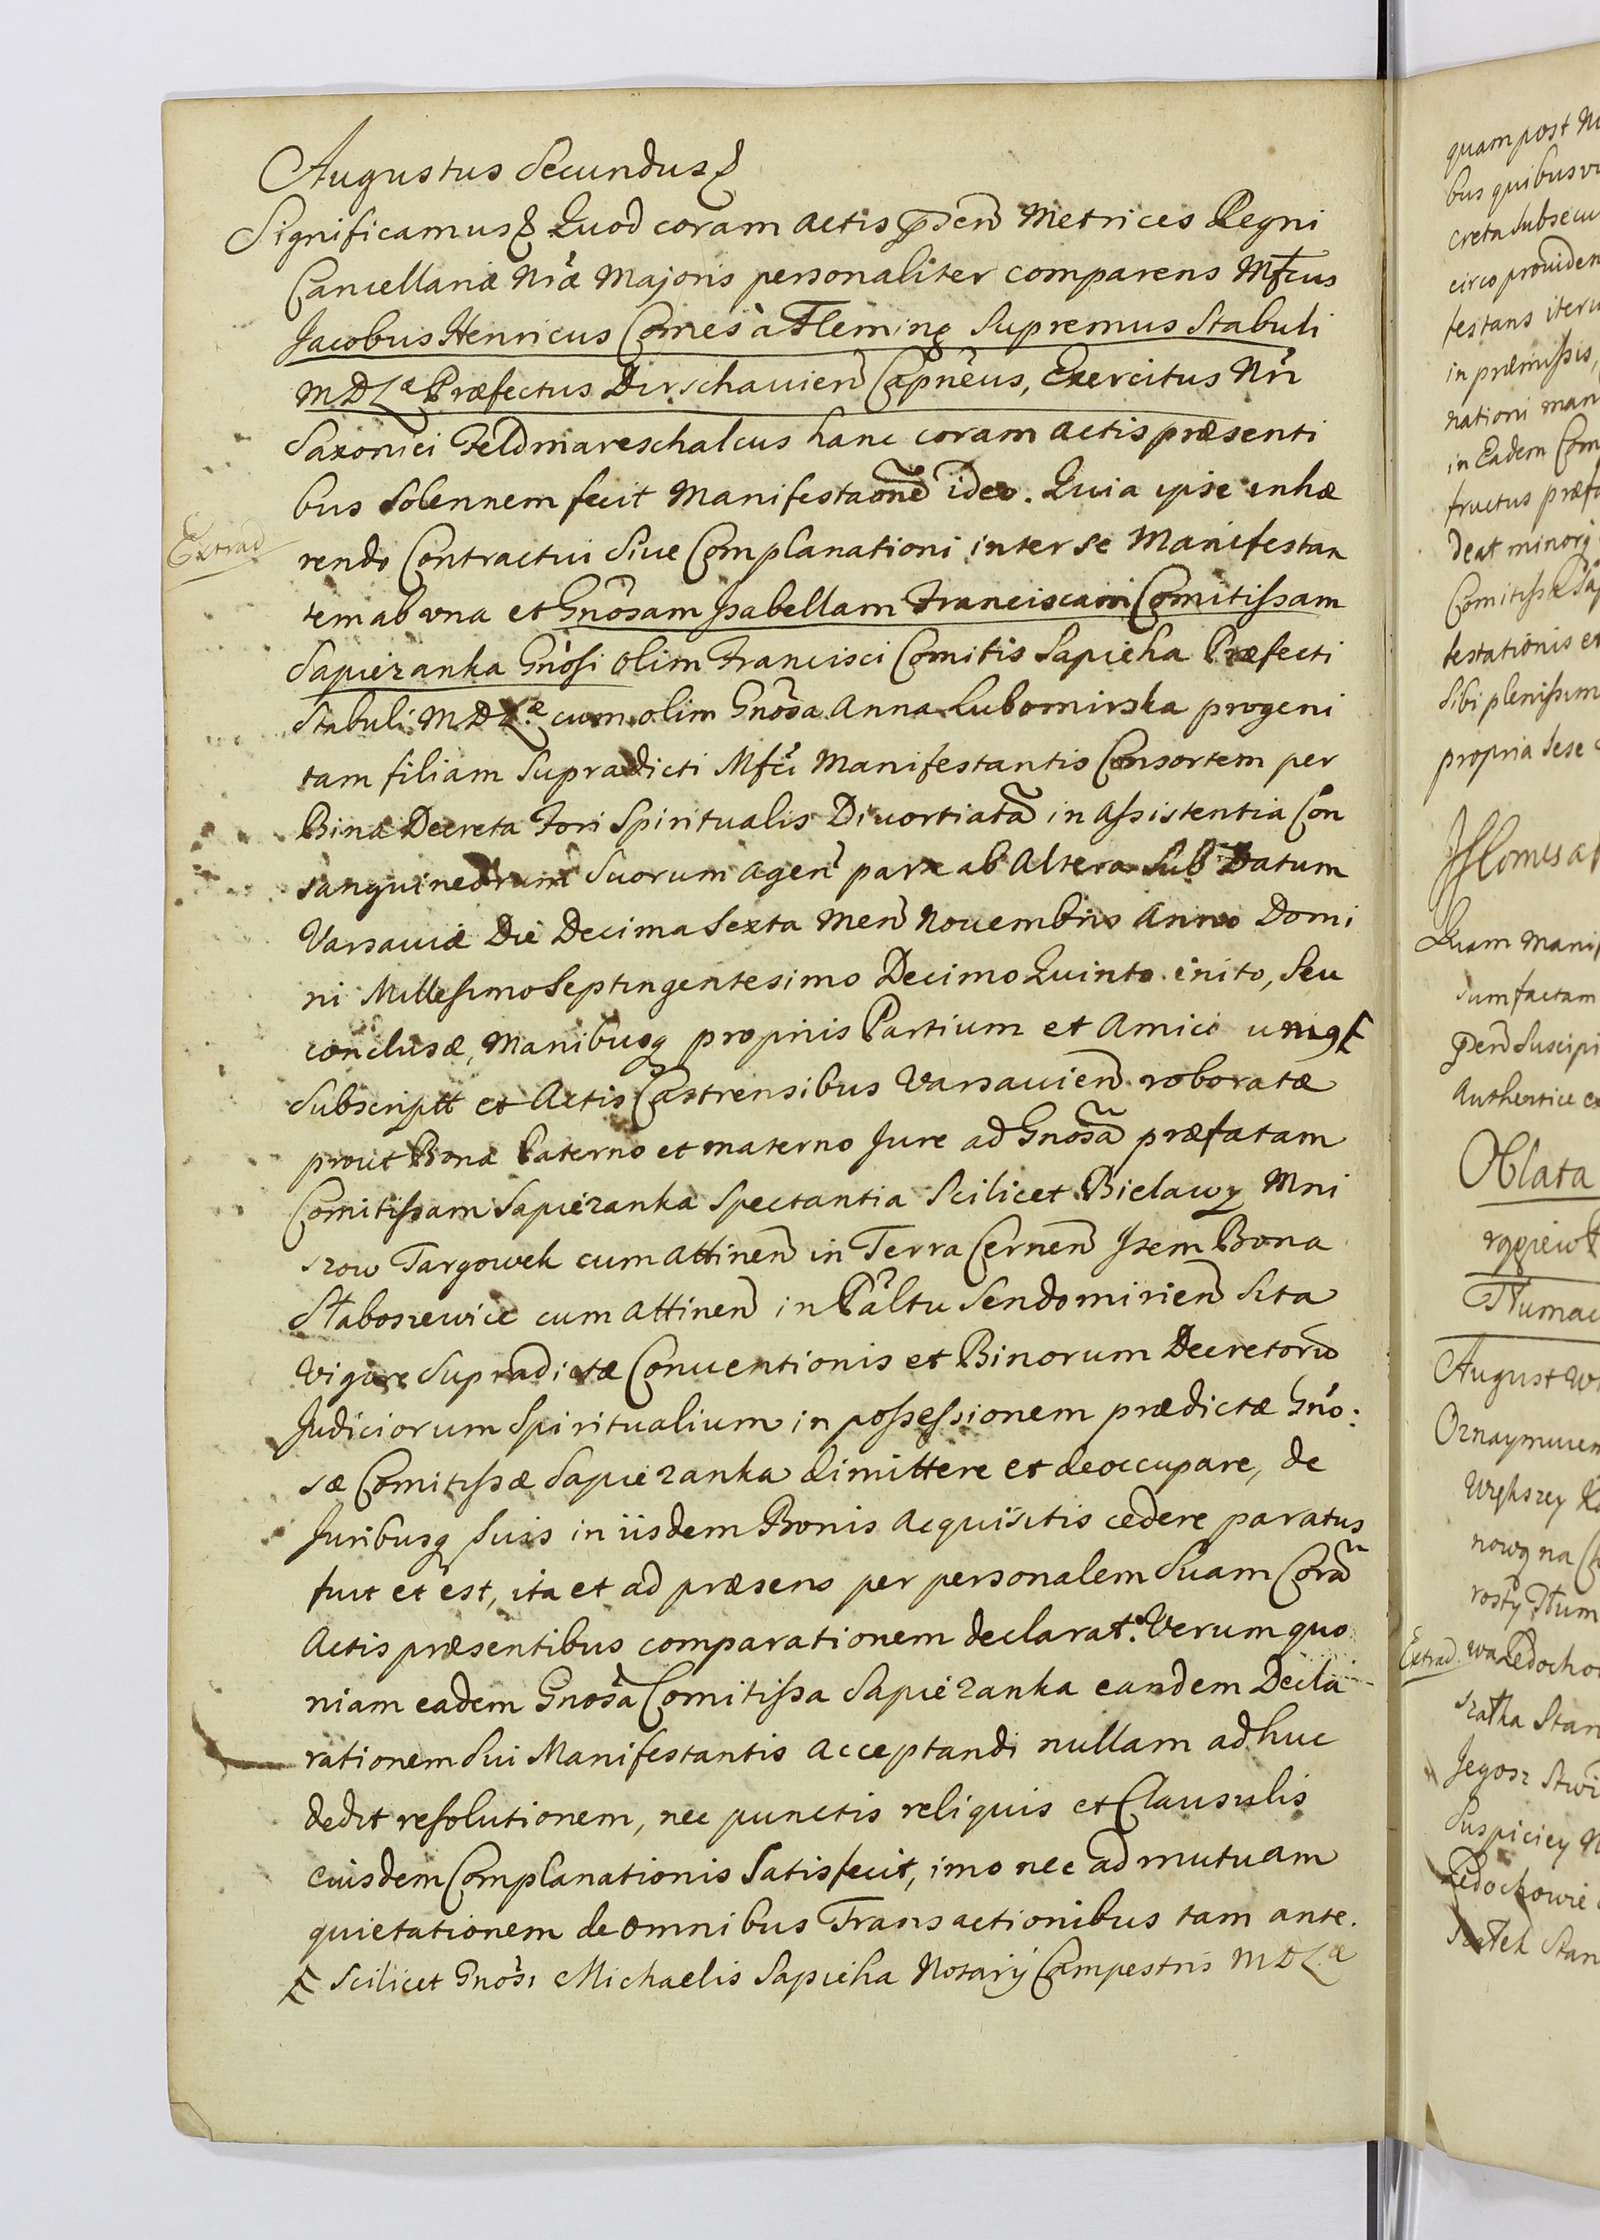 Augustus Secundus
Significamus Quod coram actis pñden Metrices Regni
Cancellariæ Nræ Majoris personaliter comparens Mfcus
Jacobus Henricus Comes à Fleming Supremus Stabuli
M.D.L.æ Præfectus Dirschauien Capneus, Exercitus Nri
Saxonici Feldmareschalcus hanc coram actis præsenti
bus Solennem fecit Manifestaone ideo. Quia ipse inhæ
Extrad
rendo Contractui Siue Complanationi inter se Manifestan
tem ab una et Gnosam Isabellam Franciscam Comitissam
Sapiezanka Gnosi olim Francisci Comitis Sapieha Præfecti
Stabuli M.D.L.æ cum olim Gnosa Anna Lubomirska progeni
tam filiam Supradicti Mfci Manifestantis Consortem per
Bina Decreta Fori Spiritualis Diuortiata in Assistentia Con
sanguineorum Suorum agen parte ab Altera Sub Datum
Varsauiæ Die Decima Sexta Men Nouembris Anno Domi
ni Millesimo Septingentesimo Decimo Quinto inito, Seu
conclusæ, Manibusq propriis Partium et Amici unig
Subscriptt et Actis Castrensibus Varsauien roboratæ
prout Bona Paterno et materno Jure ad Gnosa præfatam
Comitissam Sapiezanka Spectantia Scilicet Bielawy Mni
szow Targowek cum attinen in Terra Cernen Item Bona
Staboszewice cum attinen in Paltu Sendomirien Sita
Vigore Supradictæ Conuentionis et Binorum Decretoru
Judiciorum Spiritualium in possessionem prædictæ Gno:
sæ Comitissæ Sapiezanka dimittere et deoccupare, de
Juribusq Suis in iisdem Bonis acquisitis cedere paratus
fuit et est, ita et ad præsens per personalem Suam Cora
Actis præsentibus comparationem declarat. Verum quo
niam eadem Gnosa Comitissa Sapiezanka eandem Decla
rationem Sui Manifestantis acceptandi nullam adhuc
dedit resolutionem, nec punctis reliquis et Clausulis
eiusdem Complanationis Satisfecit, imo nec ad mutuam
quietationem de omnibus Transactionibus tam ante.
Scilicet Gnosi Michaelis Sapieha Notarij Campestris M.D.L.æ
quam post
bus quibusvi
creta Subsecu
circo prouiden
festans iteru
in præmissis,
nationi man
in Eadem Com
fructus præfa
deat minorq
Comitissæ Sap
testationis et
Sibi plenissim
propria Sese
Quam Manif
Sum factam
pden Suscipi
Authentice ex
Oblata
Tłumac
August
Oznaymuiem
Większey Ka
nowq na
rosty Tłum
Extrad
wa Ledocho
szatka Stan
Jegosz
Suspiciey
Ledochowie
Stan